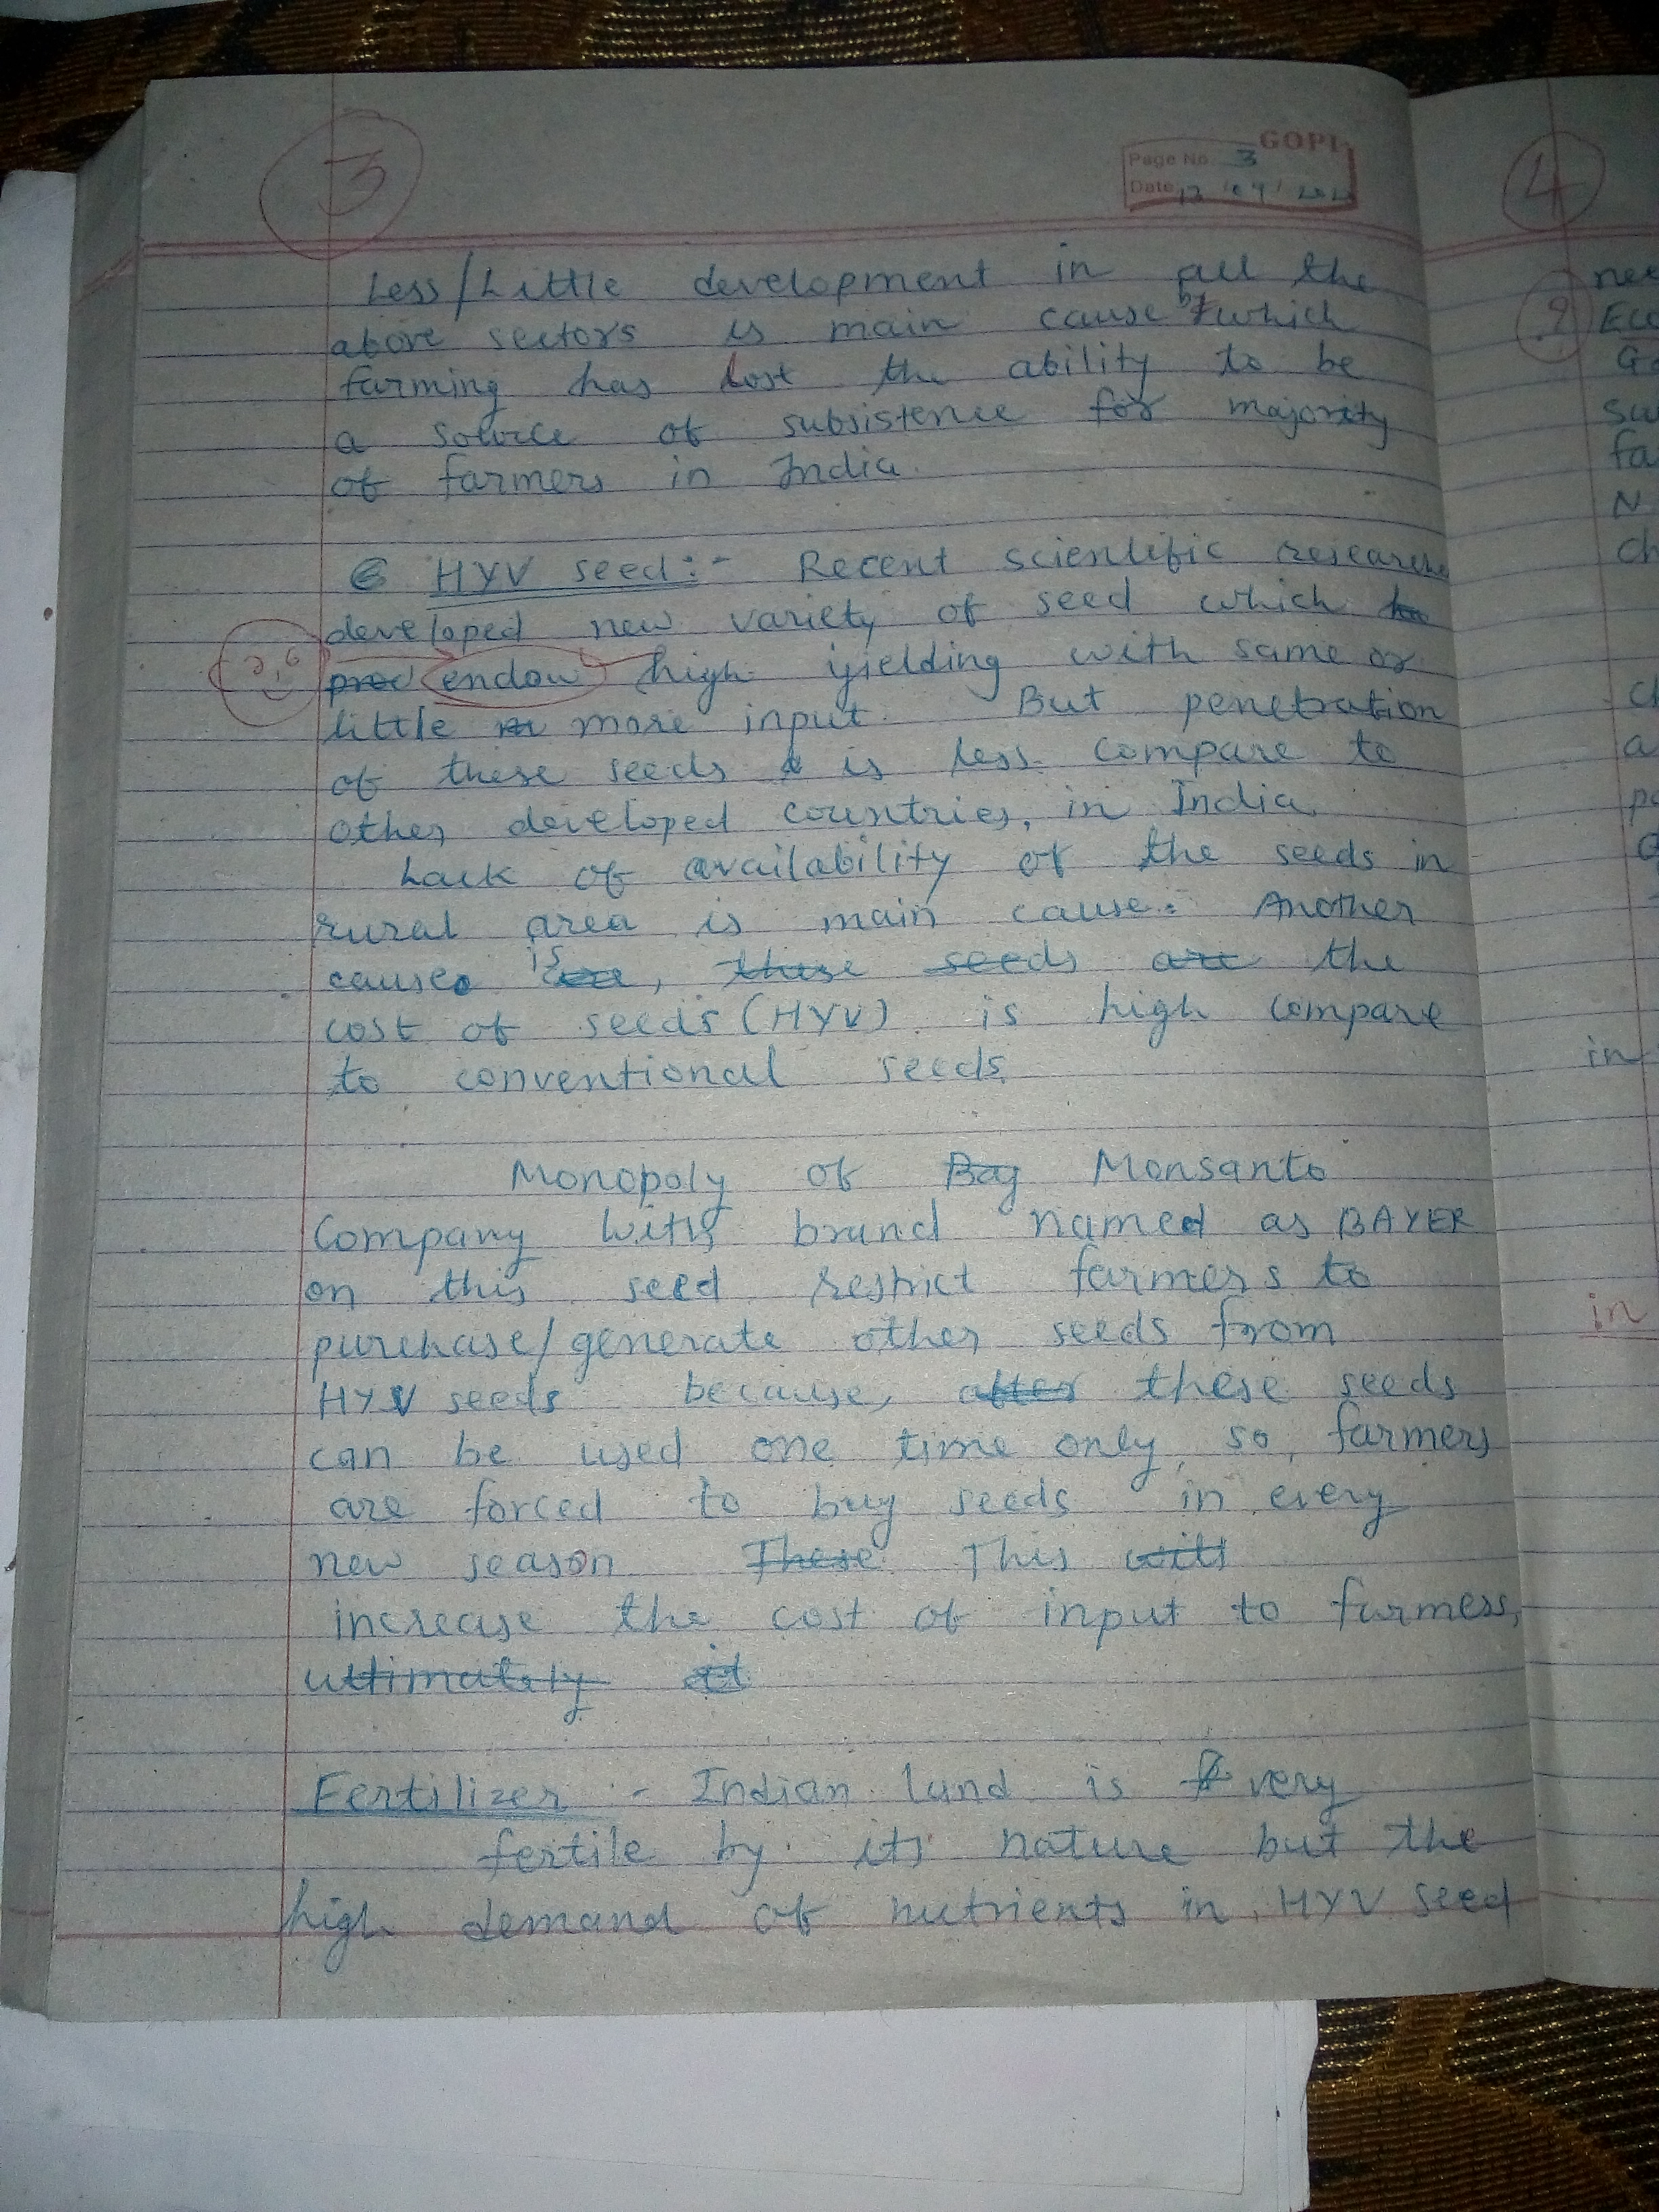 3
GOPI
Page No. 3
Date 04
Less/Little development in all the
above sectors is main cause by which
farming has lost the ability to be
a source of subsistence for majority
of farmers in India.
HYV seed:- Recent scientific
developed new variety of seed which
endow high yielding with same or
little more input. But penetration
of these seeds is less compare to
other developed countries, in India.
Lack of availability of the seeds in
rural area is main cause. Another
cause is, these seeds are the
cost of seeds (HYV) is high compare
to conventional seeds.
Monopoly of Bay Monsanto
Company with brand named as BAYER
on this seed restrict farmers to
purchase/generate other seeds from
HYV seeds because, after these seeds
can be used one time only, so, farmers
are forced to buy seeds in every
new season These This will
increase the cost of input to farmers,
ultimately it
Fertilizer :- Indian land is very
fertile by its nature but the
high demand of nutrients in HYV seed
4
9
in
in